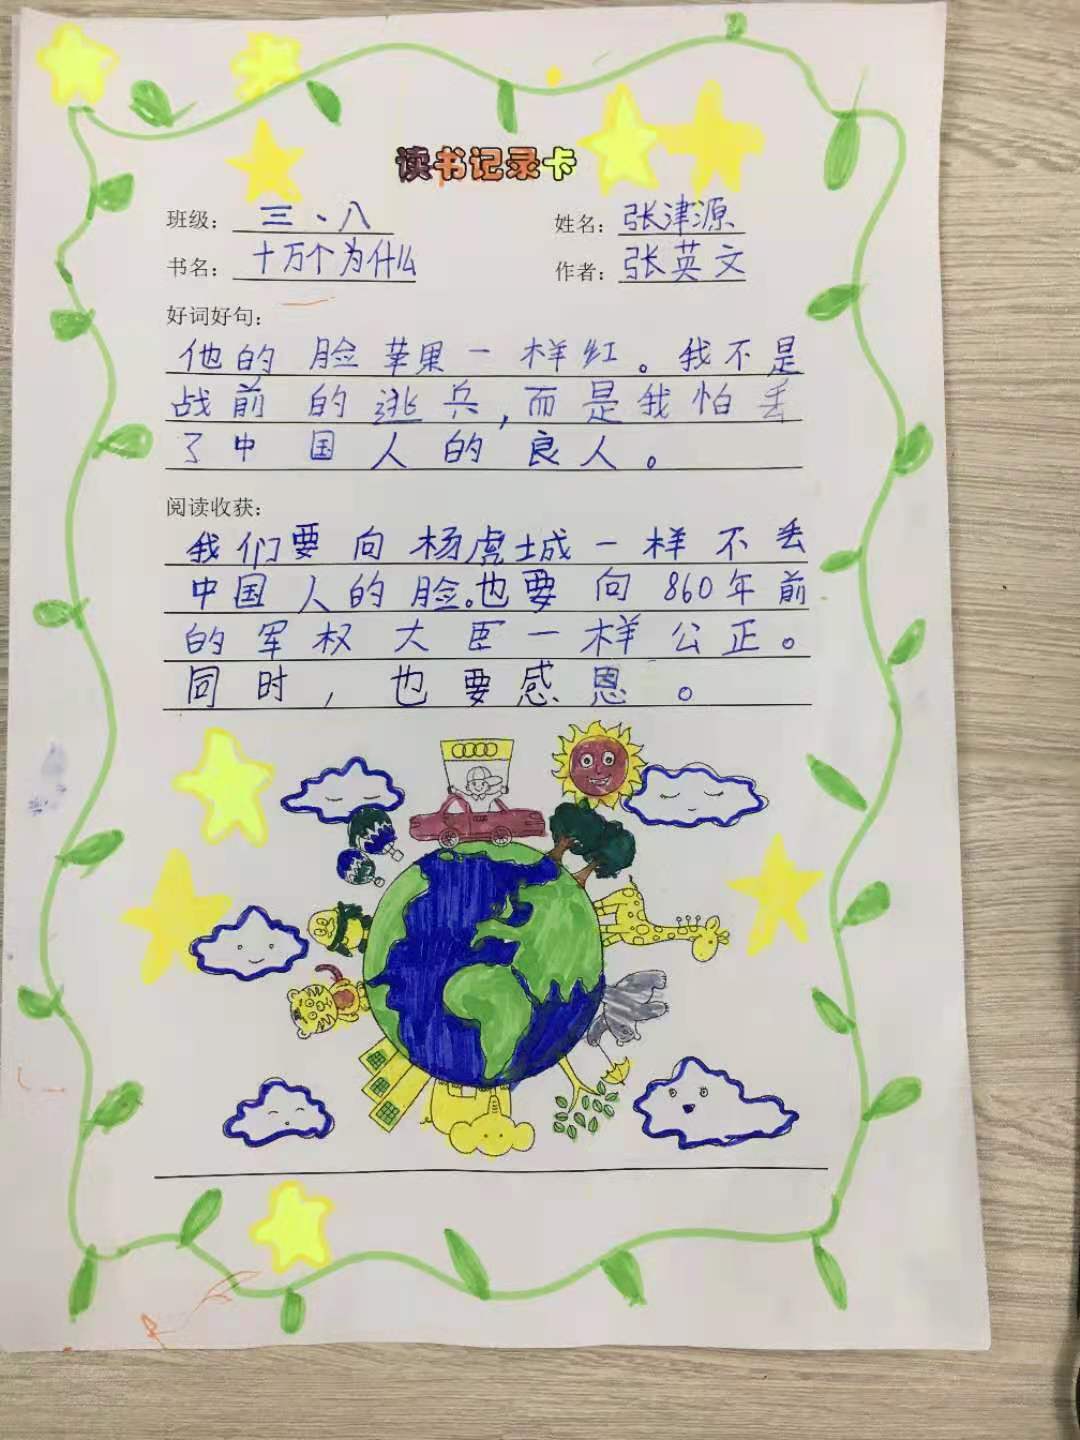 读书记录卡
班级：三、八 姓名：张津源
书名：十万个为什么 作者：张英文
好词好句：
他的脸苹果一样红。我不是
战前的逃兵，而是我怕丢
了中国人的良人。
阅读收获：
我们要向杨虎城一样不丢
中国人的脸。也要向860年前
的军权大臣一样公正。
同时，也要感恩。